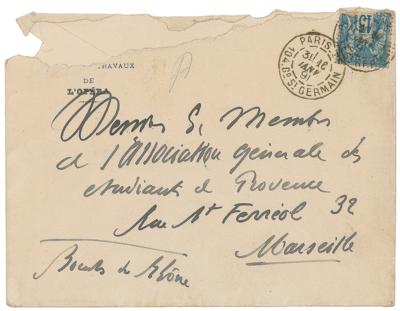 TRAVAUX
DE
L'OPÉRA
PARIS
JANV
91
104. Bd St GERMAIN
15
Messieurs Membres
de l'Association générale des
étudiants de Provence
Rue St Ferréol 32
Marseille
Bouches du Rhône